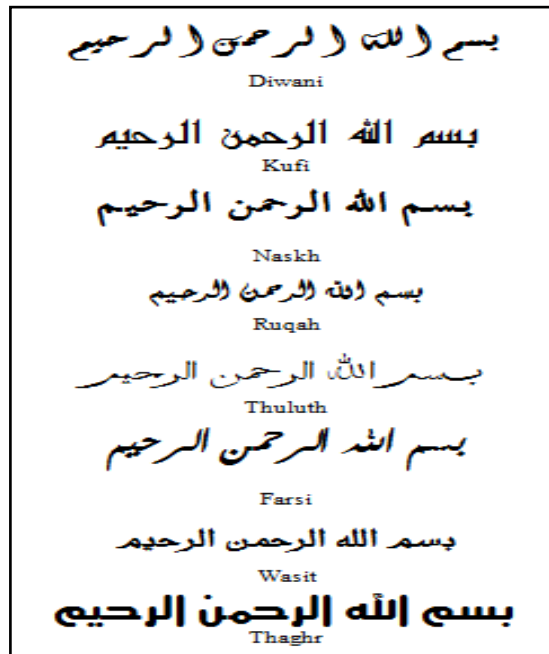 بسم الله الرحمن الرحيم
Diwani
بسم الله الرحمن الرحيم
Kufi
بسم الله الرحمن الرحيم
Naskh
بسم الله الرحمن الرحيم
Ruqah
بسم الله الرحمن الرحيم
Thuluth
بسم الله الرحمن الرحيم
Farsi
بسم الله الرحمن الرحيم
Wasit
بسم الله الرحمن الرحيم
Thaghr